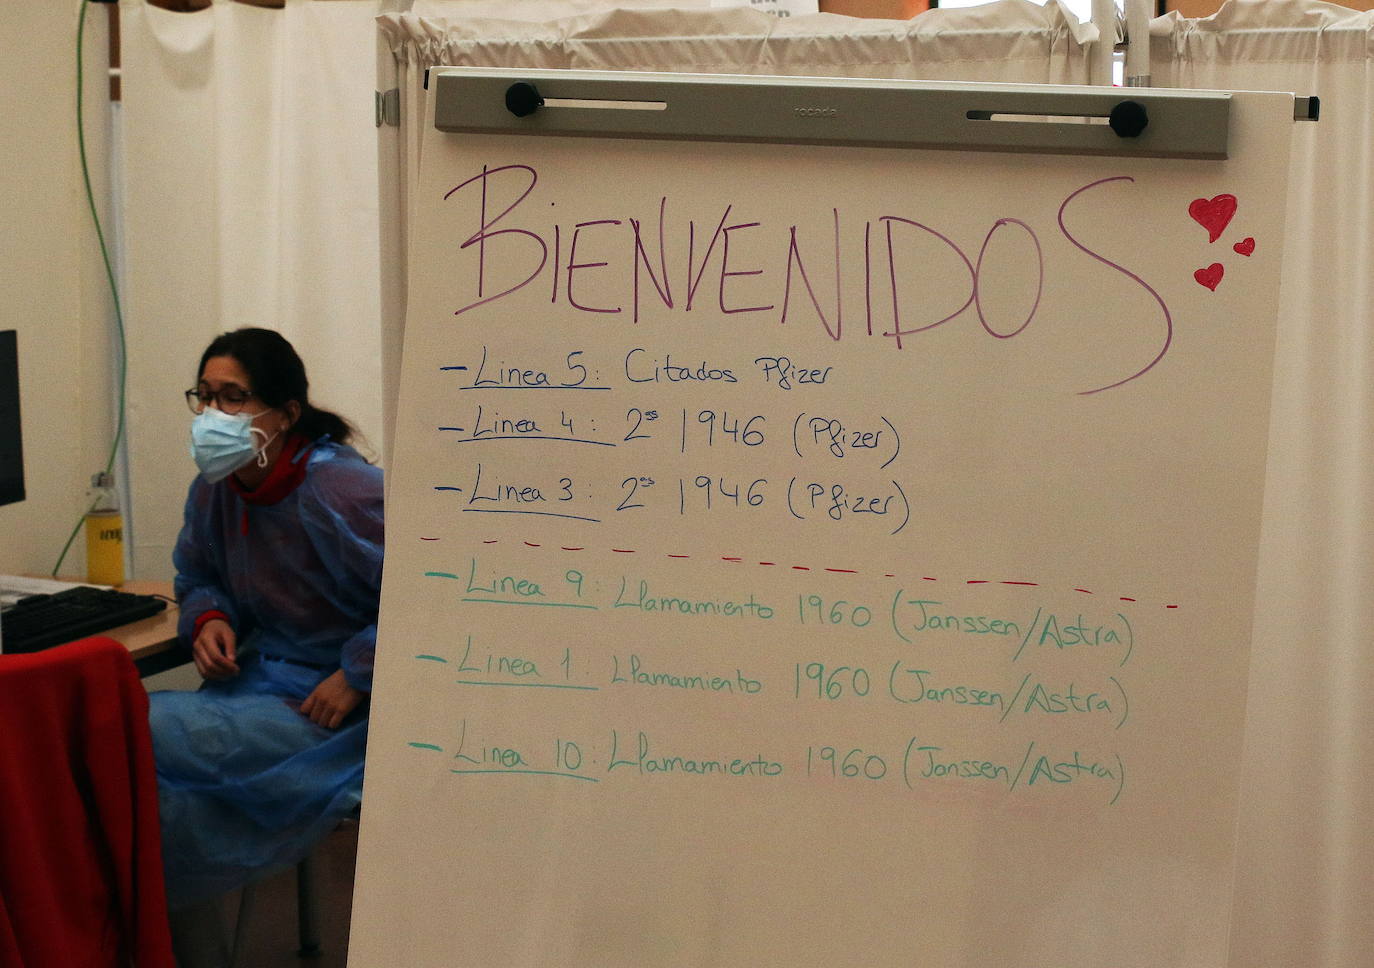 rocada
BIENVENIDOS
- Linea 5: Citados Pfizer
- Linea 4: 2ªs 1946 (Pfizer)
- Linea 3: 2ªs 1946 (Pfizer)
- Linea 9: Llamamiento 1960 (Janssen/Astra)
- Linea 1: Llamamiento 1960 (Janssen/Astra)
- Linea 10: Llamamiento 1960 (Janssen/Astra)